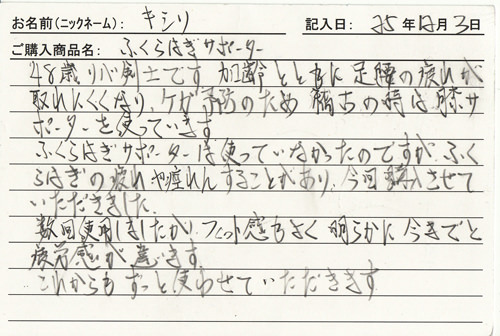 お名前(ニックネーム): キシリ 記入日: 25年12月3日
ご購入商品名: ふくらはぎサポーター
48歳 剣士です 加齢とともに足腰の疲れが
取れにくくなり、ケガ予防のため 稽古の時は膝サ
ポーターを使っています
ふくらはぎサポーターは使っていなかったのですが、ふく
らはぎの疲れや痙れんすることがあり、今回購入させて
いただきました。
数回使用しましたが、フィット感もよく 明らかに今までと
疲労感が違います。
これからもずっと使わせていただきます